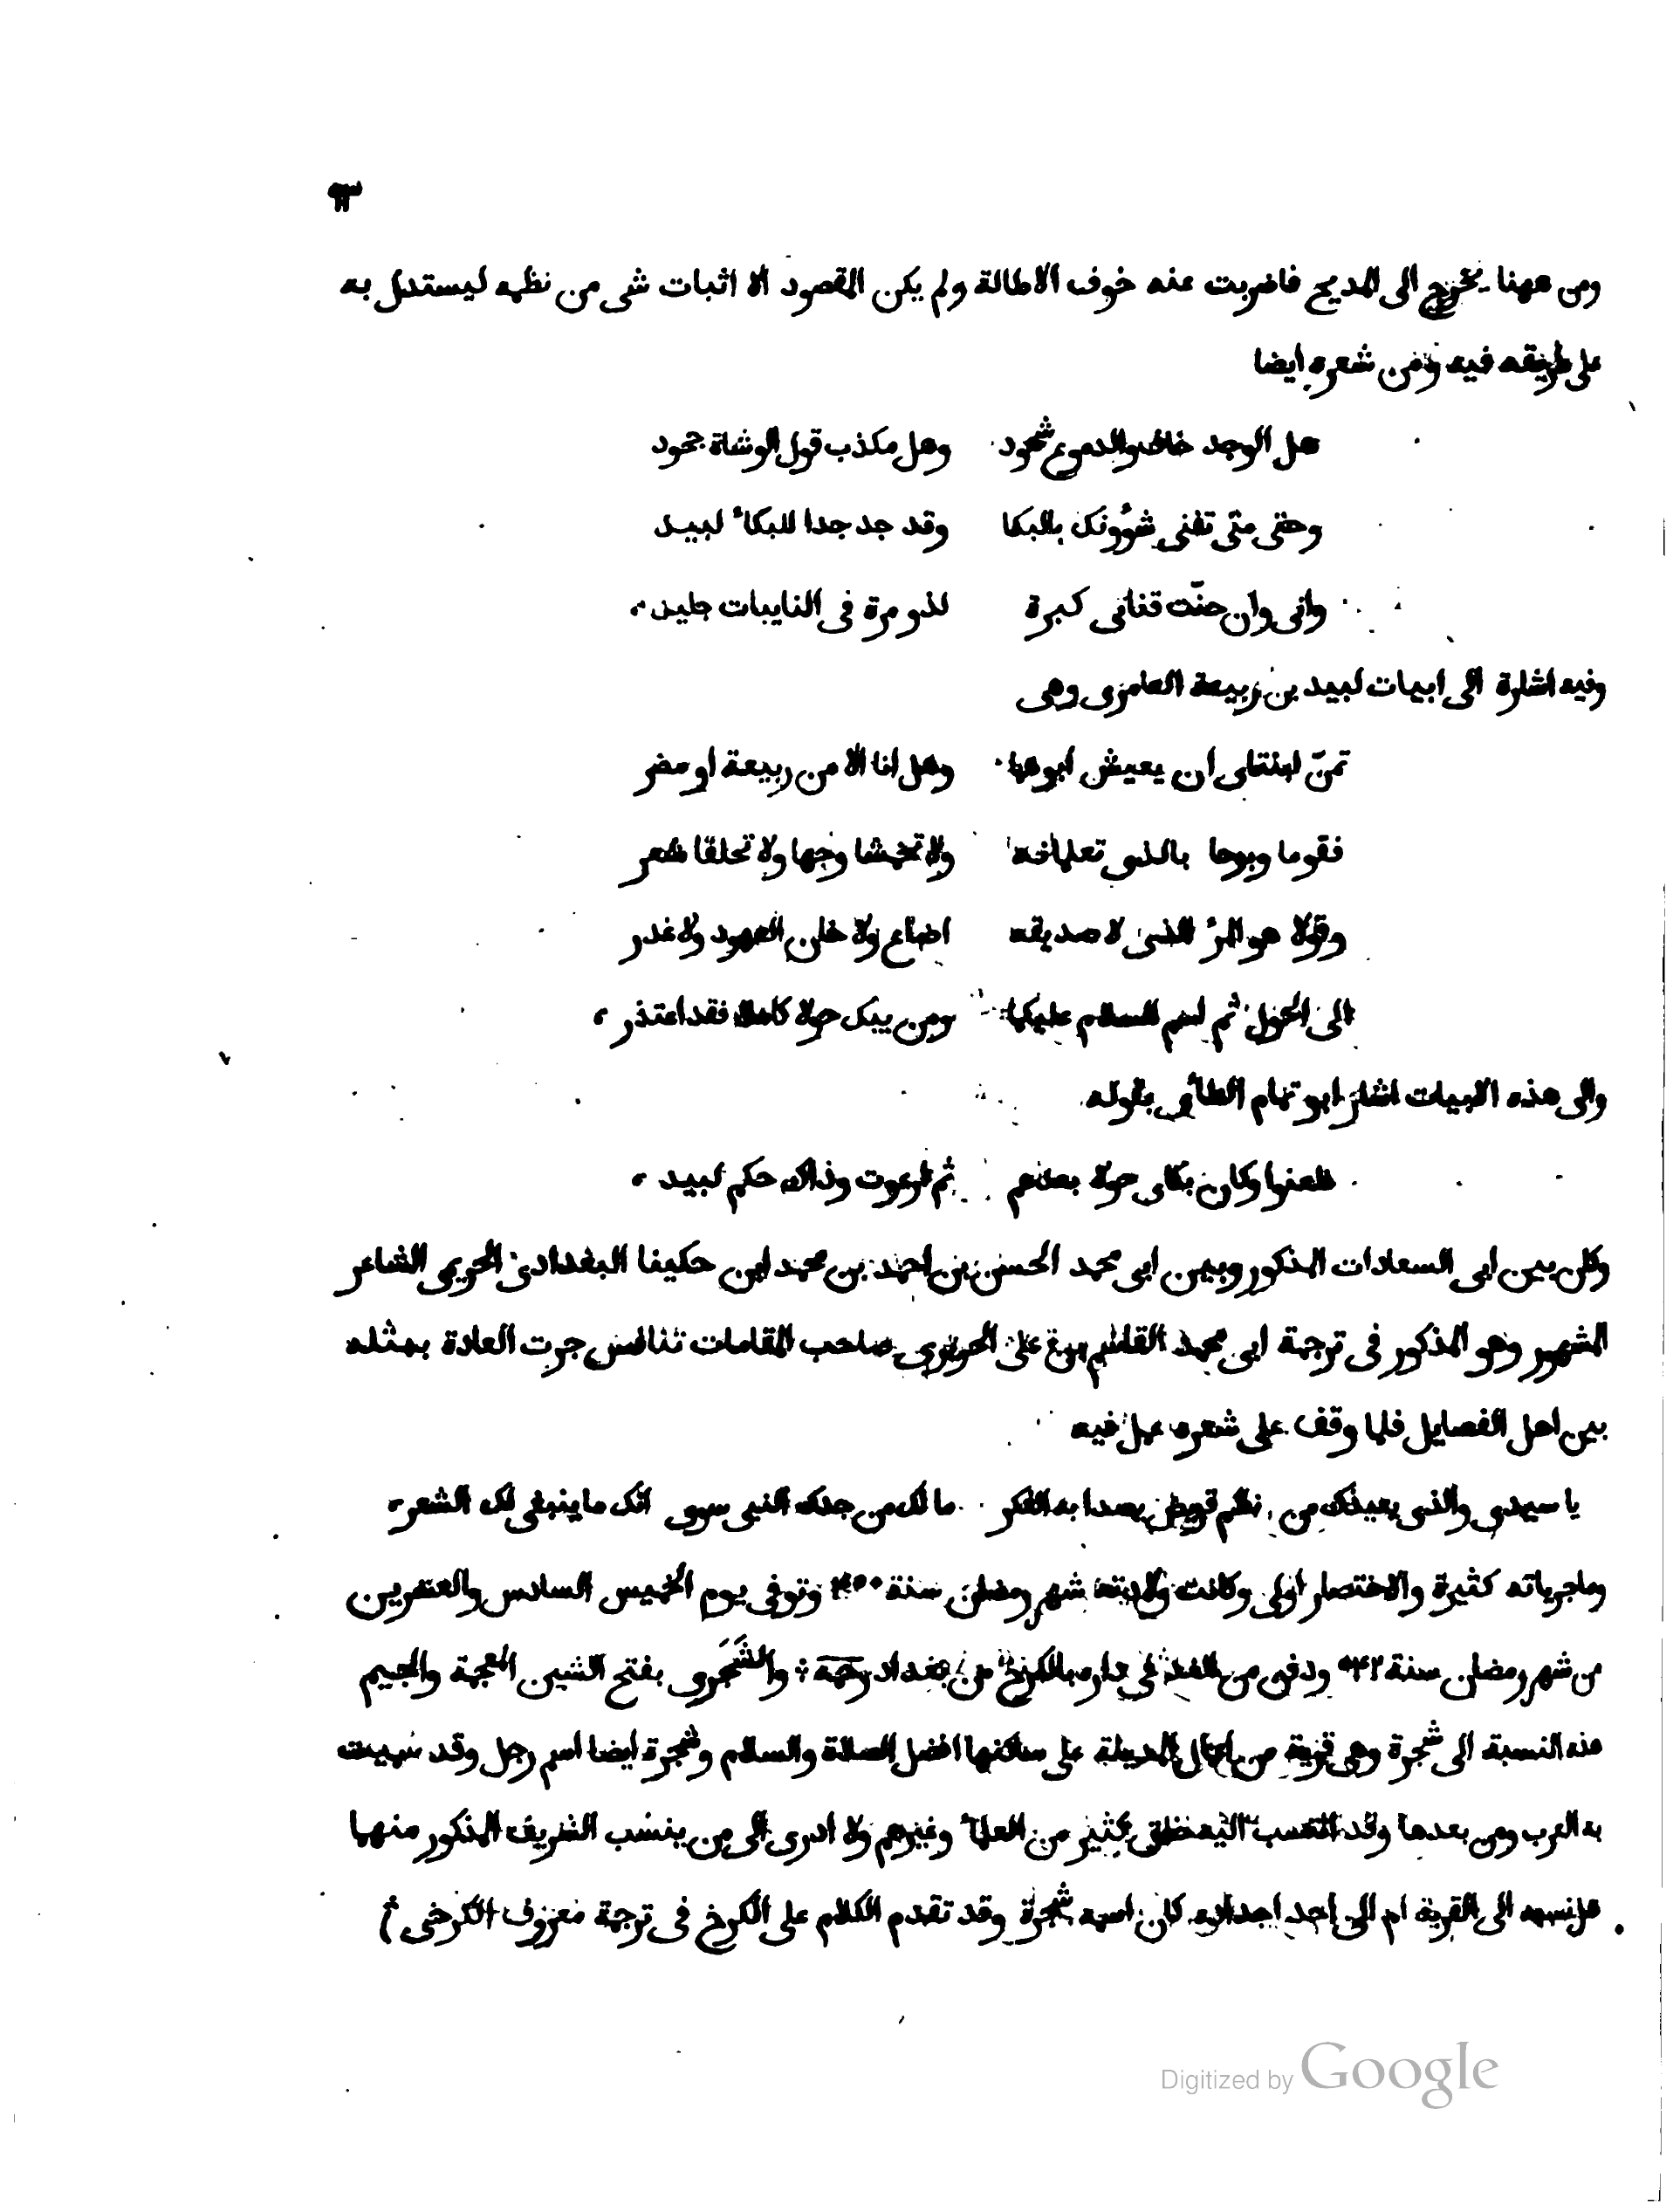 ٩٣
ومن ههنا يخرج الى المديح فاضربت عنه خوف الاطالة ولم يكن المقصود الا اثبات شى من نظمه ليستدل به
على طريقه فيه ومن شعره ايضا
هل الوجد خاف والدموع شهود وهل مكذب قول الوشاة جحود
وحتى متى تفنى شؤونك بالبكا وقد جد جدا للبكاء لبيد
وانى وان حنّت قناتى كبرة لذو مرة فى النايبات جليد
وفيه اشارة الى ابيات لبيد بن ربيعة العامرى وهى
تمنّ ابنتاى ان يعيش ابوهما وهل انا الا من ربيعة او مضر
فقوما وبوحا بالذى تعلمانه ولا تخمشا وجها ولا تحلقا شعر
وقولا هو المرء الذى لا صديقه اضاع ولا خان العهود ولا غدر
الى الحول ثم اسم السلام عليكما ومن يبك حولا كاملا فقد اعتذر
والى هذه الابيات اشار ابو تمام الطاءى بقوله
ظعنوا وكان بكاى حولا بعدهم ثم ارعويت وذاك حكم لبيد
وكان بين ابى السعادات المذكور وبين ابى محمد الحسن بن احمد بن محمد ابن حكينا البغدادى الحريمى الشاعر
المشهور وهو المذكور فى ترجمة ابى محمد القاسم بن على الحريرى صاحب المقامات تنافس جرت العادة بمثله
بين اهل الفضايل فلما وقف على شعره عمل فيه
يا سيدى والذى يعيذك من نظم قريض يصدا به الفكر ما لك من جدك النبى سوى انك ما ينبغى لك الشعر
وماجرياته كثيرة والاختصار اولى وكانت ولادته شهر رمضان سنة ٤٥٠ وتوفى يوم الخميس السادس والعشرين
من شهر رمضان سنة ٥٤٢ ودفن من الغد فى داره بالكرخ من بغداد رحمه والشَّجَرى بفتح الشين المعجمة والجيم
هذه النسبة الى شجرة وهى قرية من اعمال المدينة على ساكنها افضل الصلاة والسلام وشجرة ايضا اسم رجل وقد سميت
به العرب ومن بعدها وقد انتسب اليه خلق كثير من العلماء وغيرهم ولا ادرى الى من ينسب الشريف المذكور منهما
هل نسبه الى القرية ام الى احد اجداده كان اسمه شجرة وقد تقدم الكلام على الكرخ فى ترجمة معروف الكرخى
Digitized by Google